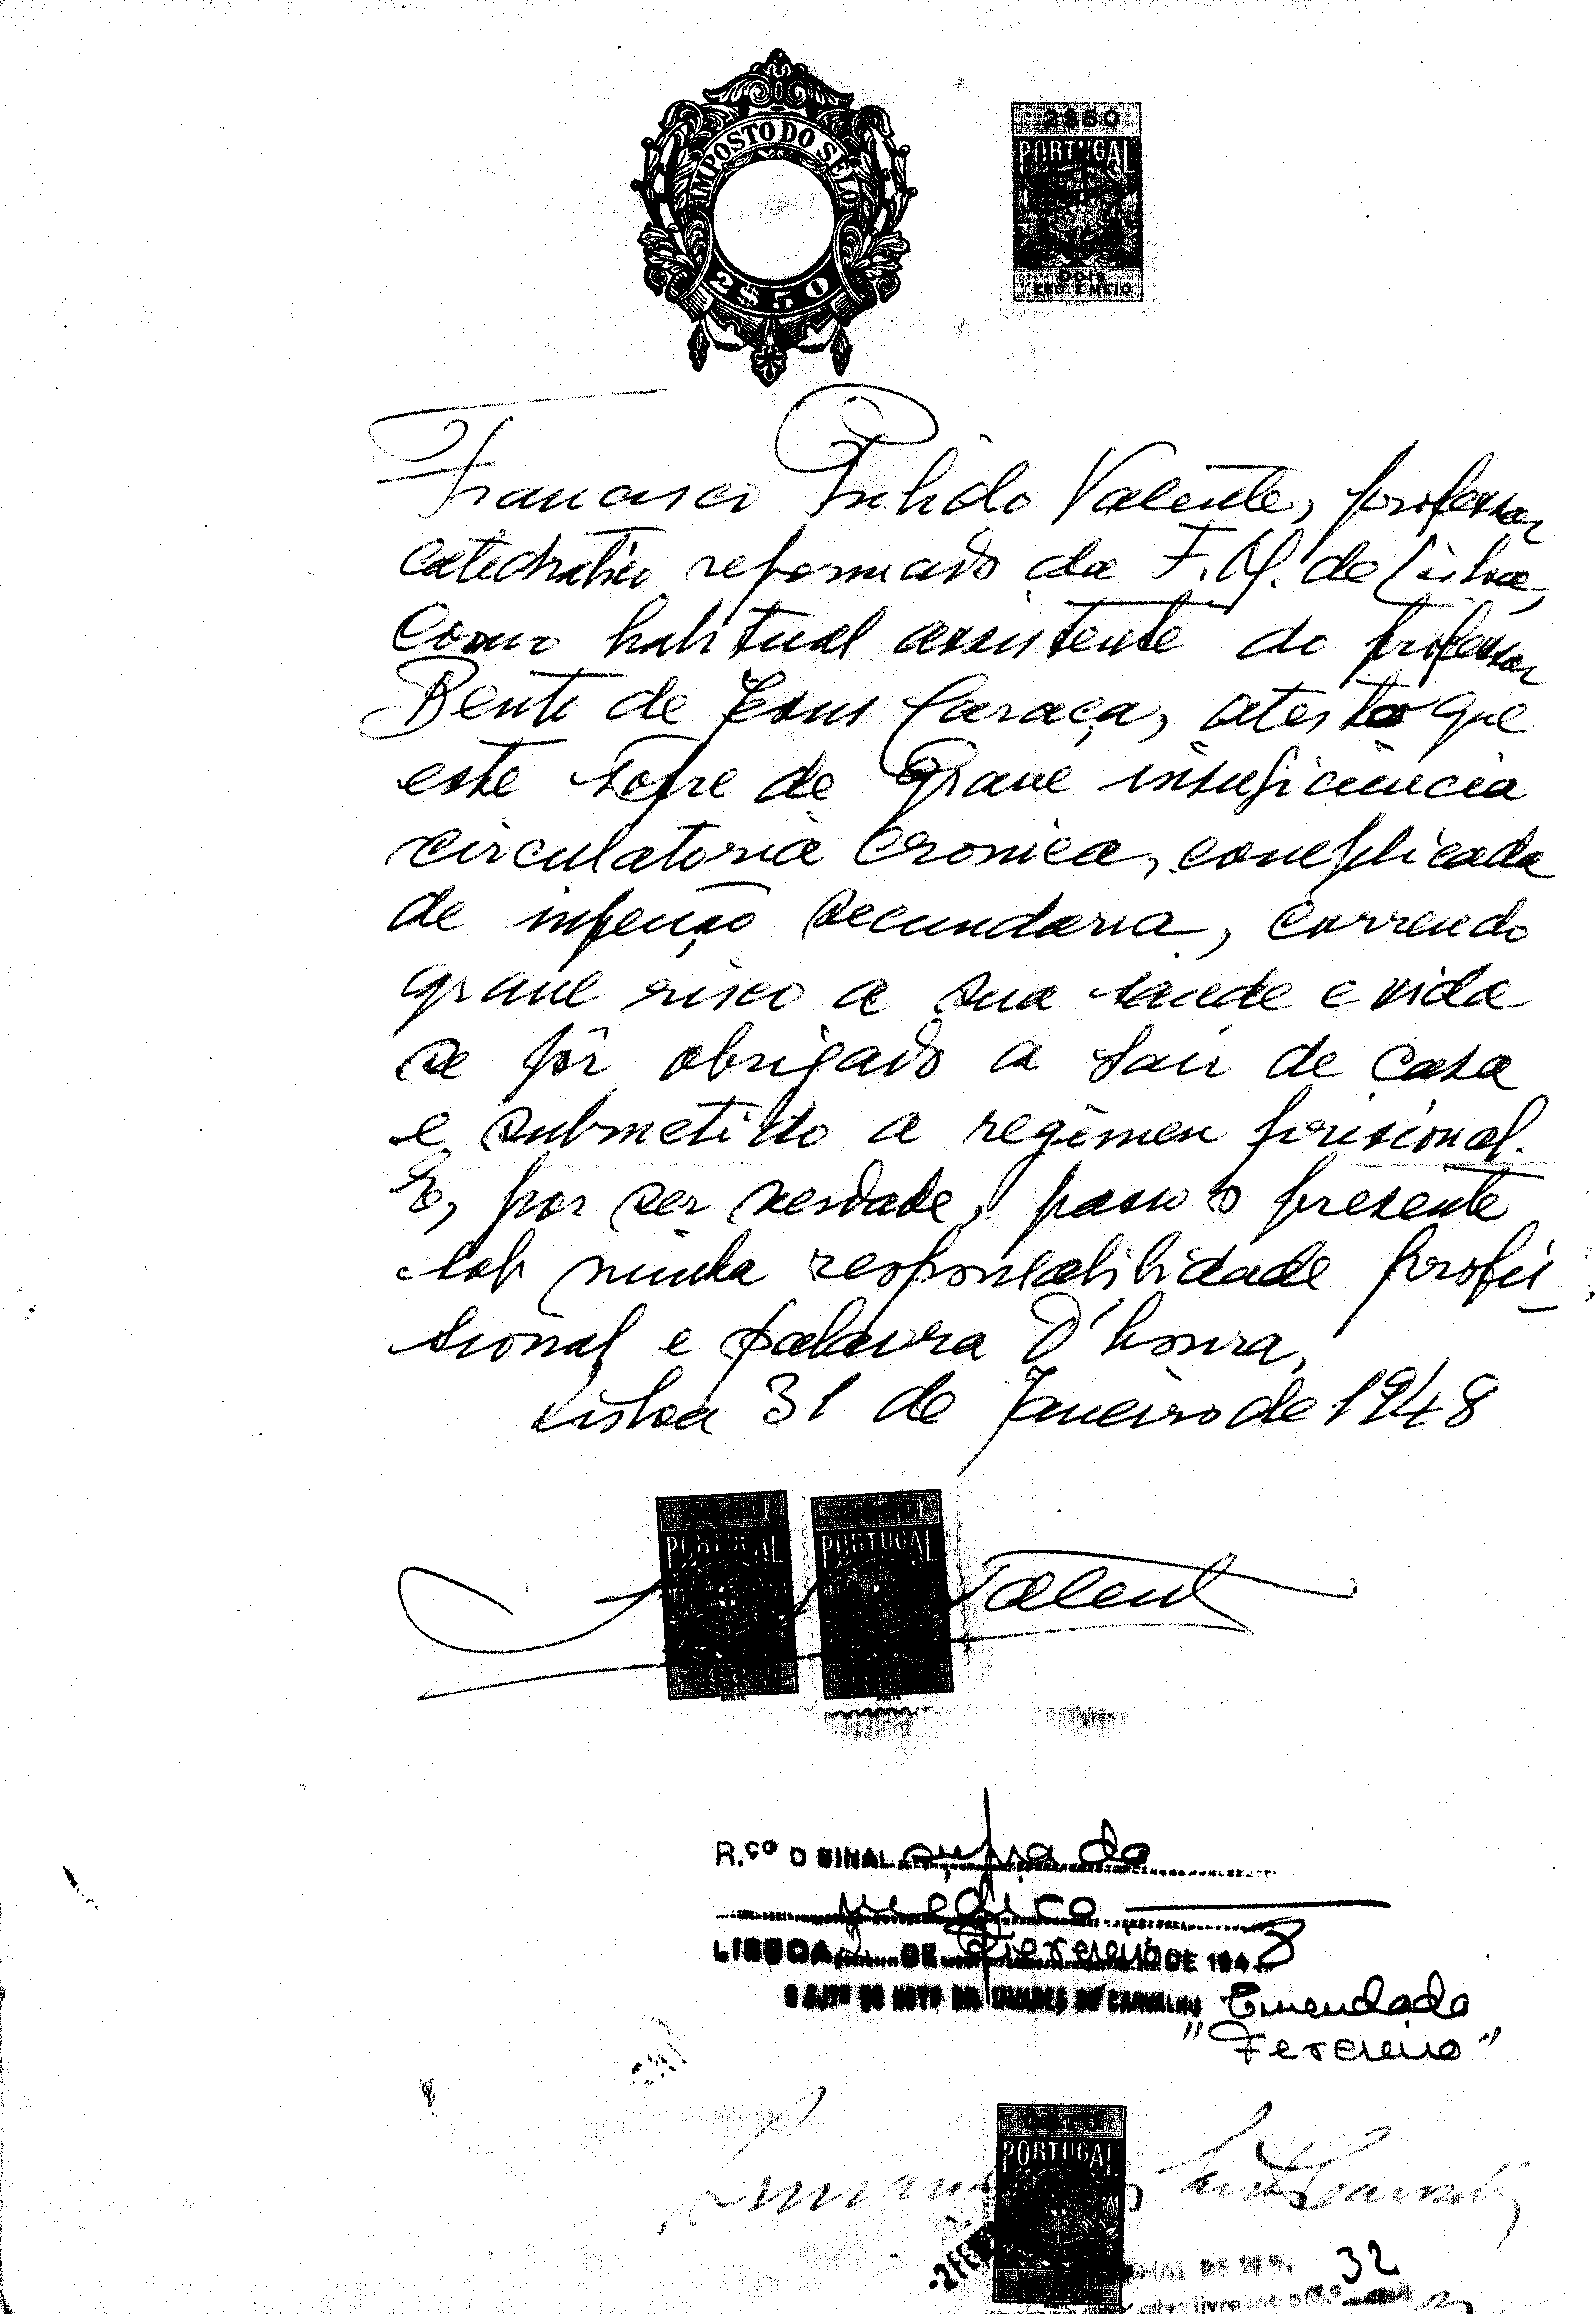 IMPOSTO DO SELO
2$50
2$50
PORTUGAL
Dois
ESC. E MEIO
Francisco Pulido Valente, professor
catedratico reformado da F. M. de Lisboa,
como habitual assistente do professor
Bento de Jesus Caraça, atesto que
este sofre de grave insuficiencia
circulatoria cronica, complicada
de infecção secundaria, correndo
grave risco a sua saude e vida
se fôr obrigado a sair de casa
e submetido a regimen prisional.
E, por ser verdade, passo o presente
sob minha responsabilidade profis-
sional e palavra d'honra.
Lisboa 31 de Janeiro de 1948
PORTUGAL PORTUGAL
Valente
R.ço O SINAL supra do
medico
LISBOA 2 DE Fevereiro DE 1948
Emendado
"Fevereiro"
PORTUGAL
2 FEV
32